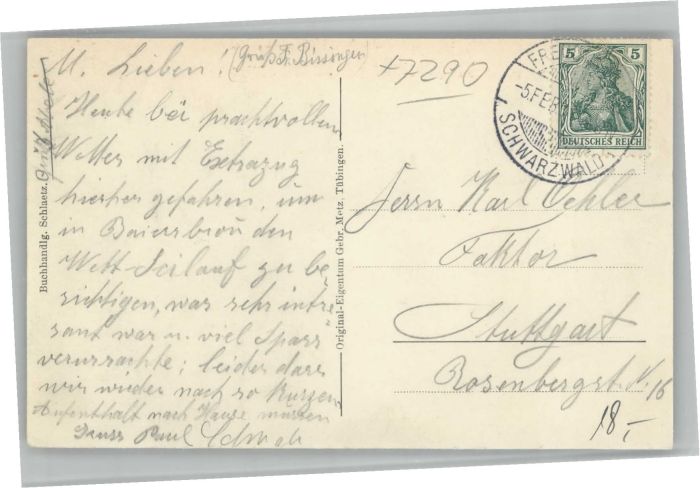 M. Lieben! (Gruß Fr. Bissinger)
Heute bei prachtvollem
Wetter mit Extrazug
hierher gefahren, um
in Baiersbron den
Wett-Skilauf zu be-
sichtigen, was sehr intre-
sant war u. viel Spass
verursachte; leider dass
wir wieder nach so kurzem
Aufenthalt nach Hause müssen
Gruss Paul
Buchhandlg. Schlaetz,
Original-Eigentum Gebr. Metz, Tübingen.
+7290
5 5
DEUTSCHES REICH
-5.FEB
SCHWARZWALD
Herrn Karl Oehler
Faktor
Stuttgart
Rosenbergst. N. 16
18,-